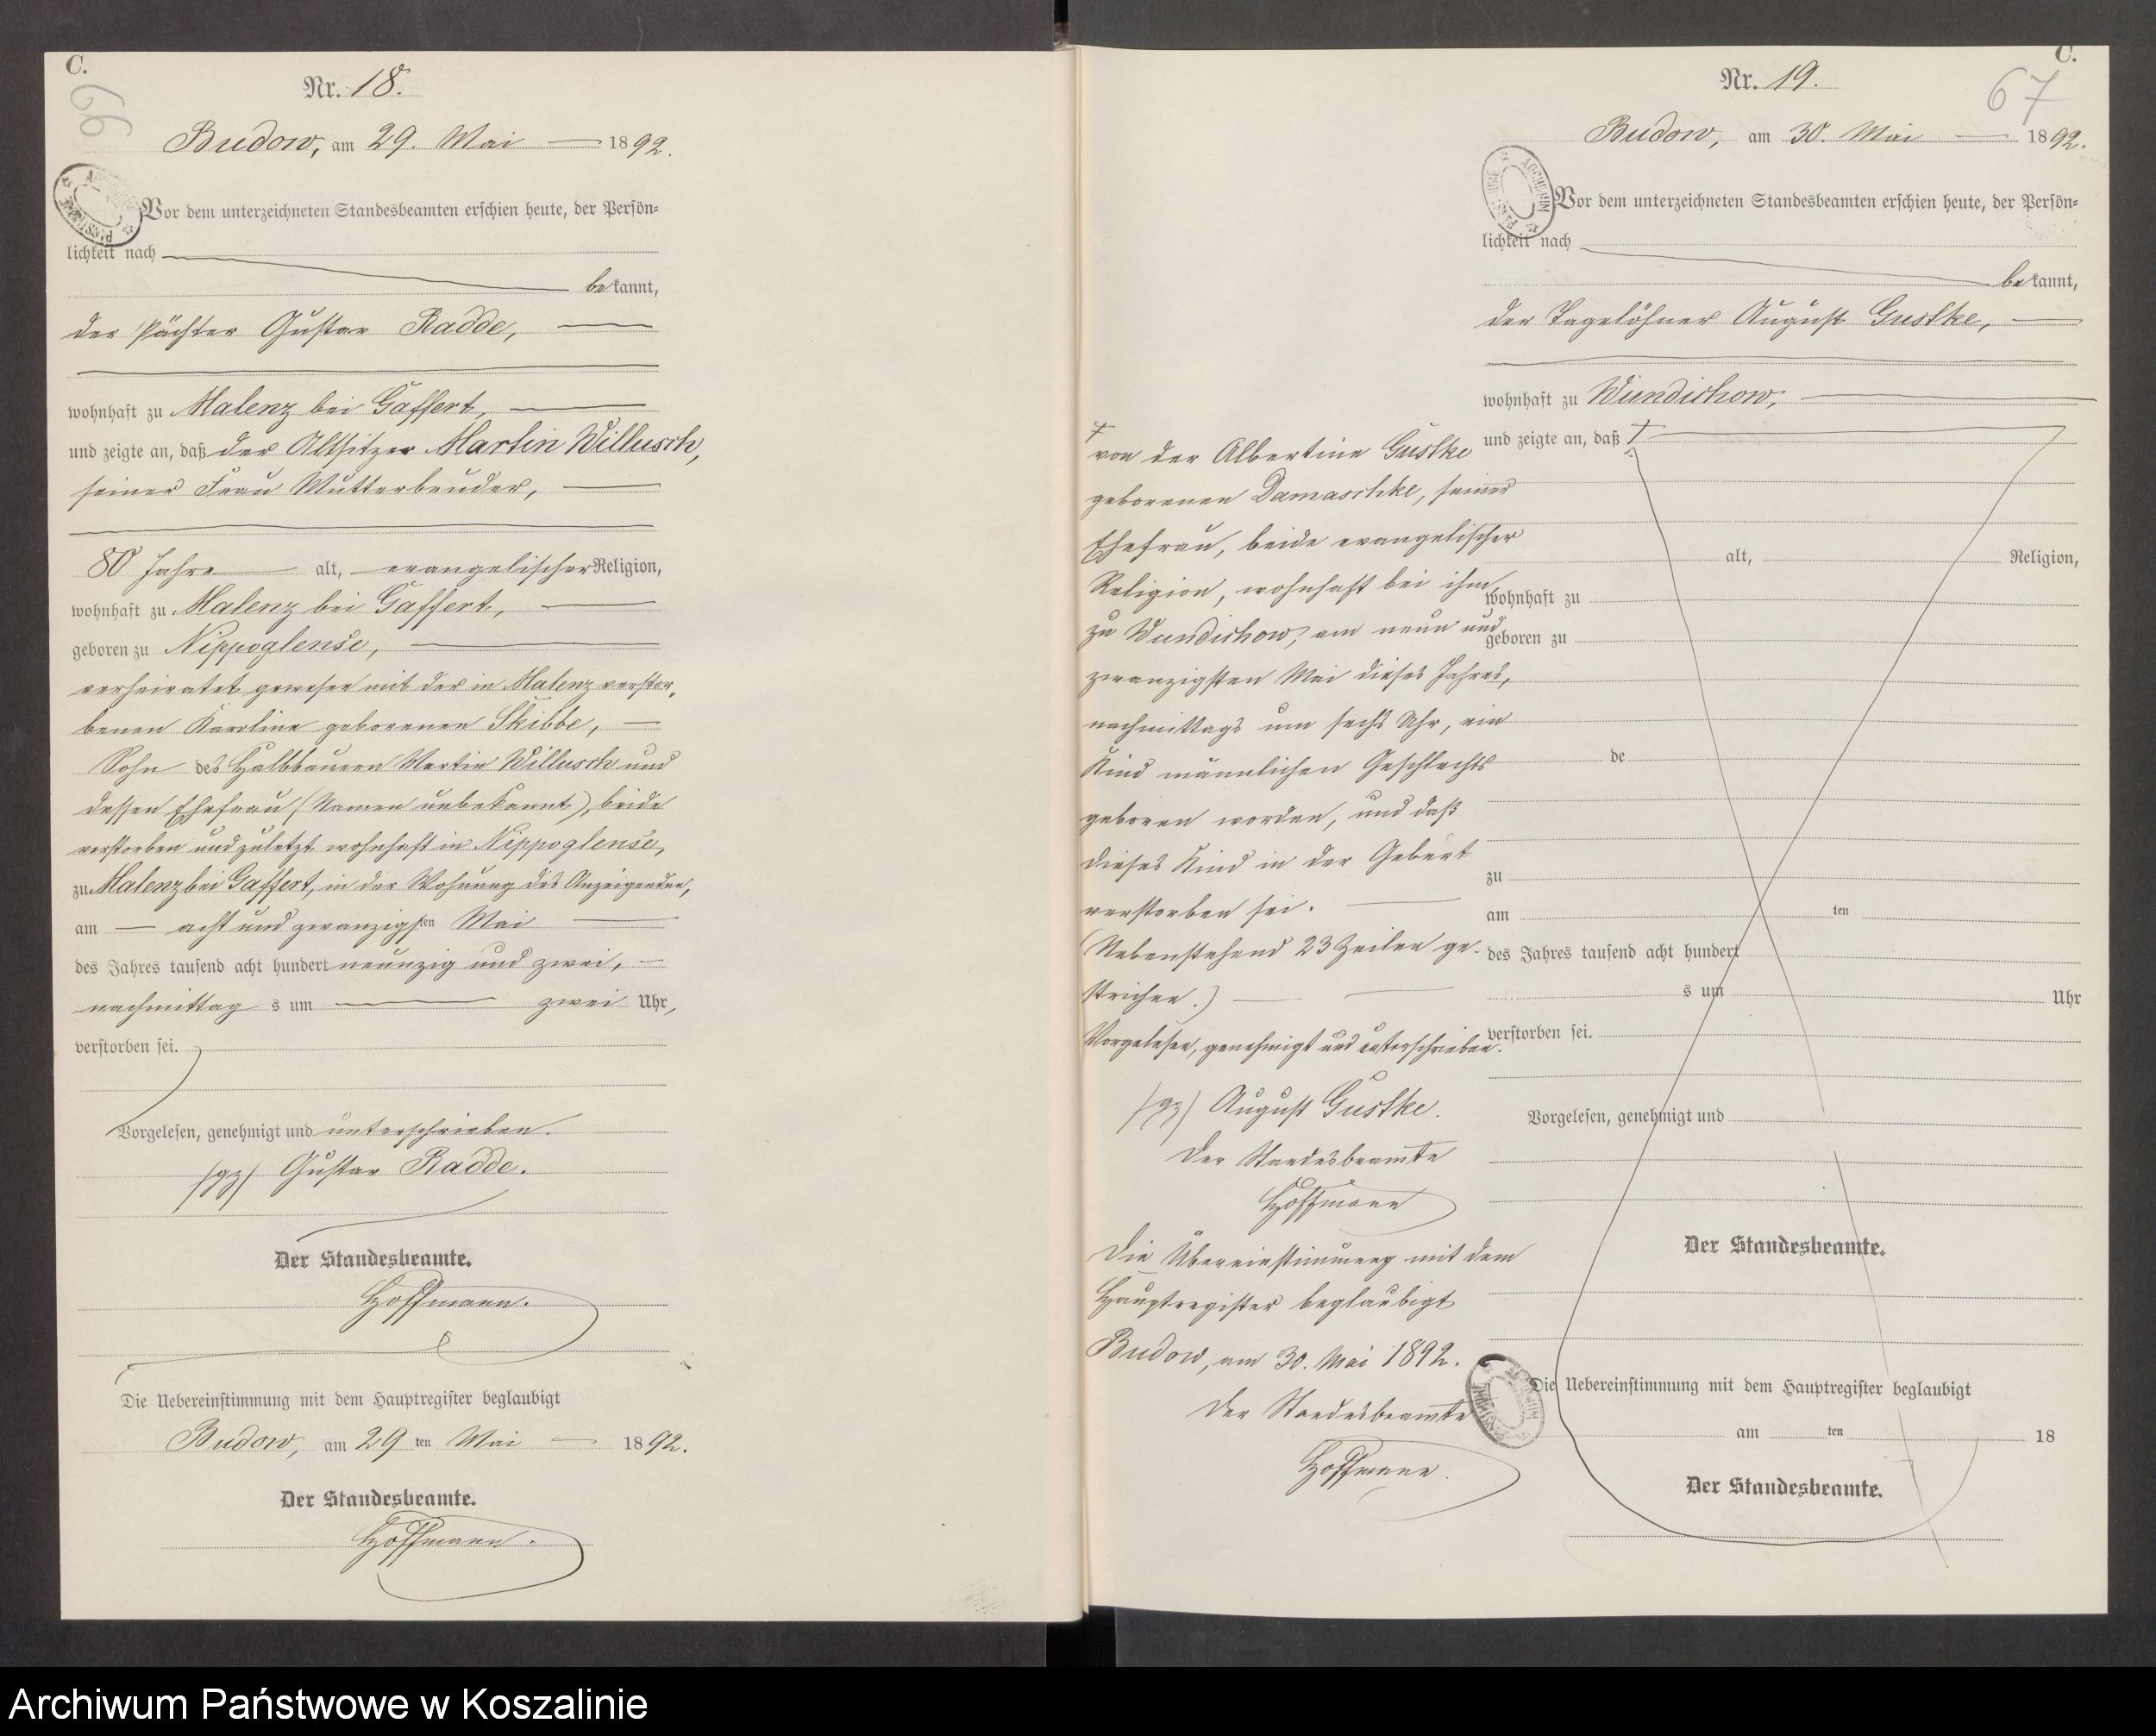 C.
66
Nr. 18.
Budow, am 29. Mai 1892.
Vor dem unterzeichneten Standesbeamten erschien heute, der Persön=
lichkeit nach
bekannt,
der Pächter Gustav Radde,
wohnhaft zu Malenz bei Gaffert,
und zeigte an, daß der Altsitzer Martin Willusch,
seiner Frau Mutterbruder,
80 Jahre alt, evangelischer Religion,
wohnhaft zu Malenz bei Gaffert,
geboren zu Nippoglense,
verheiratet gewesen mit der in Malenz verstor=
benen Karoline geborenen Skibbe,
Sohn des Halbbauern Martin Willusch und
dessen Ehefrau (Namen unbekannt), beide
verstorben und zuletzt wohnhaft in Nippoglense,
zu Malenz bei Gaffert, in der Wohnung des Anzeigenden,
am acht und zwanzigsten Mai
des Jahres tausend acht hundert neunzig und zwei,
nachmittags um zwei Uhr,
verstorben sei.
Vorgelesen, genehmigt und unterschrieben.
/gz/ Gustav Radde.
Der Standesbeamte.
Hoffmann.
Die Uebereinstimmung mit dem Hauptregister beglaubigt
Budow, am 29ten Mai 1892.
Der Standesbeamte.
Hoffmann.
C.
67
Nr. 19.
Budow, am 30. Mai 1892.
Vor dem unterzeichneten Standesbeamten erschien heute, der Persön=
lichkeit nach
bekannt,
der Tagelöhner August Gustke,
wohnhaft zu Wundichow,
und zeigte an, daß
von der Albertine Gustke
geborenen Damaschke, seiner
Ehefrau, beide evangelischer
Religion, wohnhaft bei ihm
zu Wundichow, am neun und
zwanzigsten Mai dieses Jahres,
nachmittags um sechs Uhr, ein
Kind männlichen Geschlechts
geboren worden, und daß
dieses Kind in der Geburt
verstorben sei.
(Nebenstehend 23 Zeilen ge-
strichen.)
Vorgelesen, genehmigt und unterschrieben.
/gz/ August Gustke.
Der Standesbeamte
Hoffmann
Die Übereinstimmung mit dem
Hauptregister beglaubigt
Budow, am 30. Mai 1892.
Der Standesbeamte
Hoffmann.
alt, Religion,
wohnhaft zu
geboren zu
de
zu
am ten
des Jahres tausend acht hundert
s um Uhr
verstorben sei.
Vorgelesen, genehmigt und
Der Standesbeamte.
Die Uebereinstimmung mit dem Hauptregister beglaubigt
am ten 18
Der Standesbeamte.
Archiwum Państwowe w Koszalinie